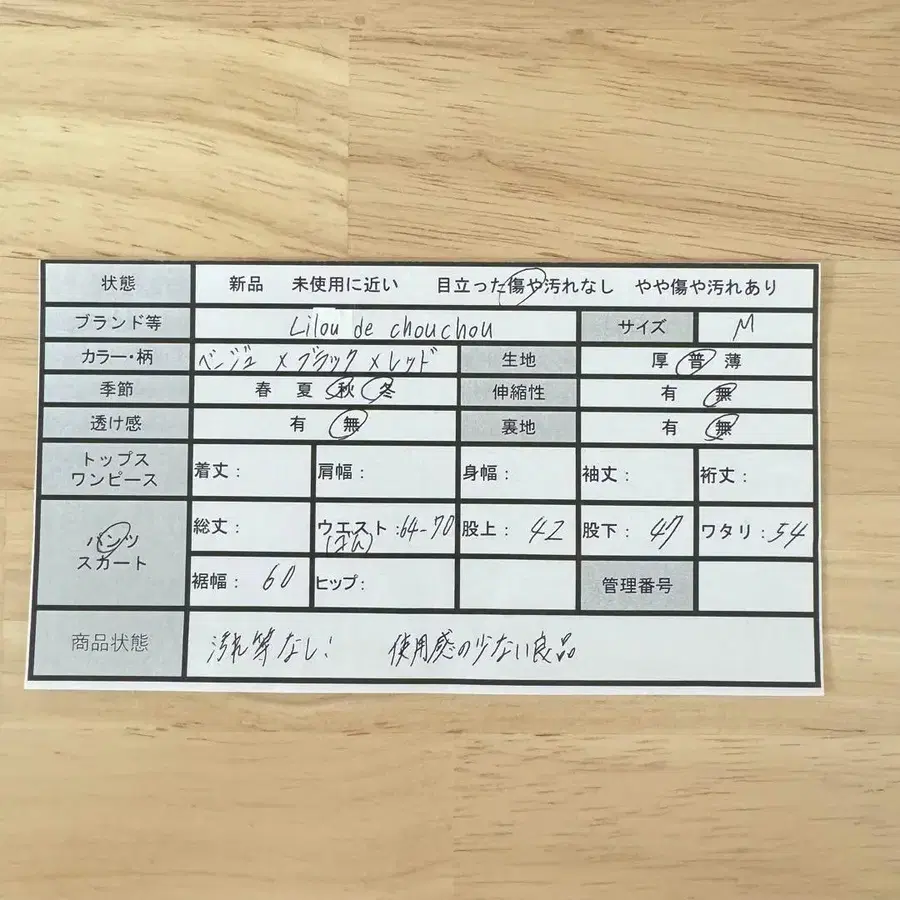 状態 新品 未使用に近い 目立った傷や汚れなし やや傷や汚れあり
ブランド等 Lilou de chouchou サイズ M
カラー・柄 ベージュ×ブラック×レッド 生地 厚 普 薄
季節 春 夏 秋 冬 伸縮性 有 無
透け感 有 無 裏地 有 無
トップス ワンピース 着丈: 肩幅: 身幅: 袖丈: 裄丈:
パンツ スカート 総丈: ウエスト:64-70 (ゴム) 股上: 42 股下: 47 ワタリ:54
裾幅: 60 ヒップ: 管理番号
商品状態 汚れ等なし! 使用感の少ない良品